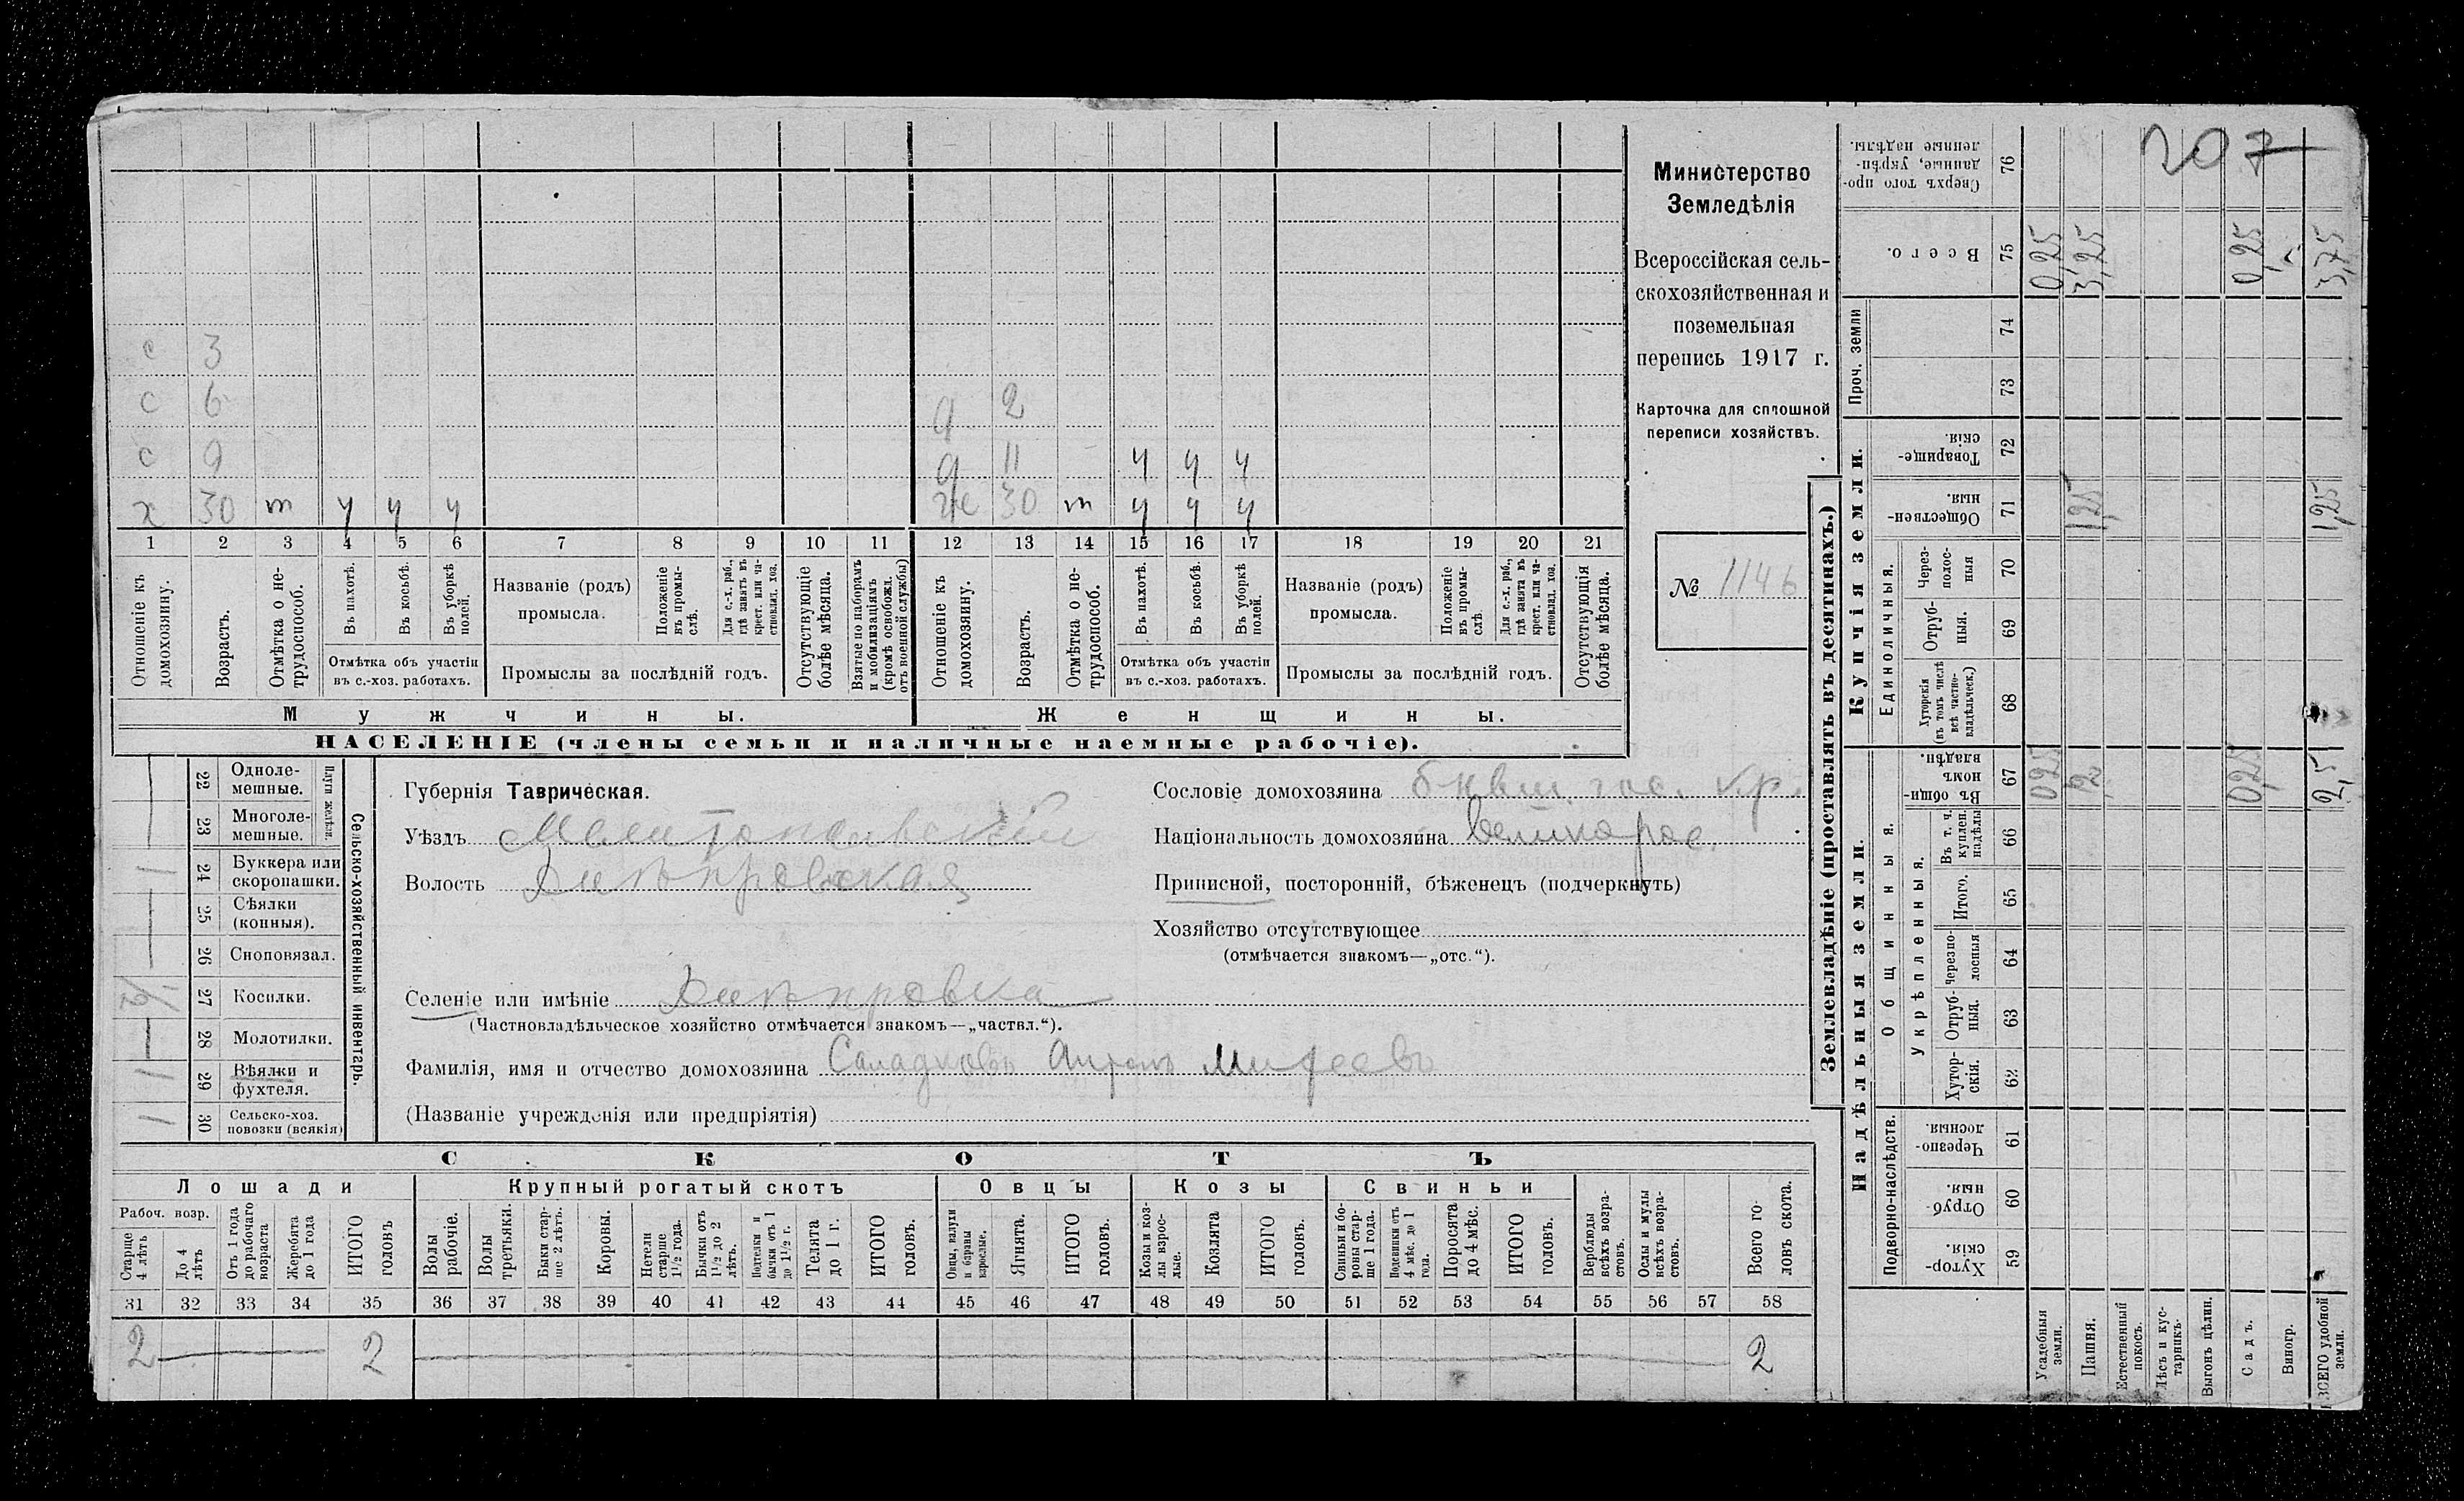 207
Министерство
Земледѣлія
Всероссійская сель-
скохозяйственная и
поземельная
перепись 1917 г.
Карточка для сплошной
переписи хозяйствъ.
№ 1146
с 3
с 6 д 2
с 9 д 11 у у у
х 30 т у у у ж 30 т у у у
1 2 3 4 5 6 7 8 9 10 11 12 13 14 15 16 17 18 19 20 21
Отношеніе къ домохозяину.
Возрастъ.
Отмѣтка о не-трудоспособ.
Въ пахотѣ.
Въ косьбѣ.
Въ уборкѣ полей.
Отмѣтка объ участіи
въ с.-хоз. работахъ.
Названіе (родъ)
промысла.
Положеніе въ промы-слѣ.
Для с.-х. раб., гдѣ занятъ въ крест. или ча-стновлад. хоз.
Промыслы за послѣдній годъ.
Отсутствующіе болѣе мѣсяца.
Взятые по наборамъ и мобилизаціямъ (кромѣ освобожд. отъ военной службы)
Отношеніе къ домохозяину.
Возрастъ.
Отмѣтка о не-трудоспособ.
Въ пахотѣ.
Въ косьбѣ.
Въ уборкѣ полей.
Отмѣтка объ участіи
въ с.-хоз. работахъ.
Названіе (родъ)
промысла.
Положеніе въ промы-слѣ.
Для с.-х. раб., гдѣ занята въ крест. или ча-стновлад. хоз.
Промыслы за послѣдній годъ.
Отсутствующія болѣе мѣсяца.
Мужчины.
Женщины.
НАСЕЛЕНІЕ (члены семьи и наличные наемные рабочіе).
Сельско-хозяйственный инвентарь.
Плуги желѣзн.
22 Одноле-мешные.
23 Многоле-мешные.
24 Буккера или скоропашки. 1
25 Сѣялки (конныя).
26 Сноповязал.
27 Косилки.
28 Молотилки.
29 Вѣялки и фухтеля. 1
30 Сельско-хоз. повозки (всякія) 1
Губернія Таврическая.
Уѣздъ Мелитопольскій
Волость Днѣпровская
Селеніе или имѣніе Днѣпровка
(Частновладѣльческое хозяйство отмѣчается знакомъ—„частвл.“).
Фамилія, имя и отчество домохозяина Саладковъ
(Названіе учрежденія или предпріятія)
Сословіе домохозяина бывш. гос. кр.
Національность домохозяина великорос.
Приписной, посторонній, бѣженецъ (подчеркнуть)
Хозяйство отсутствующее
(отмѣчается знакомъ—„отс.“).
СКОТЪ
Лошади
Крупный рогатый скотъ
Овцы
Козы
Свиньи
Рабоч. возр.
Старше 4 лѣтъ
До 4 лѣтъ
Отъ 1 года до рабочаго возраста
Жеребята до 1 года
ИТОГО головъ
Волы рабочіе.
Волы третьяки.
Быки стар-ше 2 лѣтъ.
Коровы.
Нетели старше 1½ года.
Бычки отъ 1½ до 2 лѣтъ.
Подтелки и бычки отъ 1 до 1½ г.
Телята до 1 г.
ИТОГО головъ.
Овцы, валухи и бараны взрослые.
Ягнята.
ИТОГО головъ.
Козы и коз-лы взрос-лые.
Козлята
ИТОГО головъ.
Свиньи и бо-ровы стар-ше 1 года.
Подсвинки отъ 4 мѣс. до 1 года.
Поросята до 4 мѣс.
ИТОГО головъ.
Верблюды всѣхъ возра-стовъ.
Ослы и мулы всѣхъ возра-стовъ.
Всего го-ловъ скота.
31 32 33 34 35 36 37 38 39 40 41 42 43 44 45 46 47 48 49 50 51 52 53 54 55 56 57 58
2 2 2
Землевладѣніе (проставлять въ десятинахъ.)
Купчія земли.
Надѣльныя земли.
Сверхъ того про-данные, укрѣп-ленные надѣлы. 76
Всего. 75 0,25 3,25 0,25 3,75
Проч. земли
74
73
Товарище-скія. 72
Обществен-ныя. 71 1,25 1,25
Единоличныя.
Через-полос-ныя 70
Отруб-ныя. 69
Хуторскія (въ томъ числѣ всѣ частно-владѣльческ.) 68
Общинныя.
Въ общи-номъ владѣн. 67 0,25 2 0,25 2,5
Укрѣпленныя.
Въ т. ч. куплен. надѣлы 66
Итого. 65
черезпо-лосныя 64
Отруб-ныя. 63
Хутор-скія. 62
Подворно-наслѣдств.
Черезпо-лосныя. 61
Отруб-ныя. 60
Хутор-скія. 59
Усадебныя земли.
Пашня.
Естественный покосъ.
Лѣсъ и кус-тарникъ.
Выгонъ цѣлин.
Садъ.
Виногр.
ВСЕГО удобной земли.